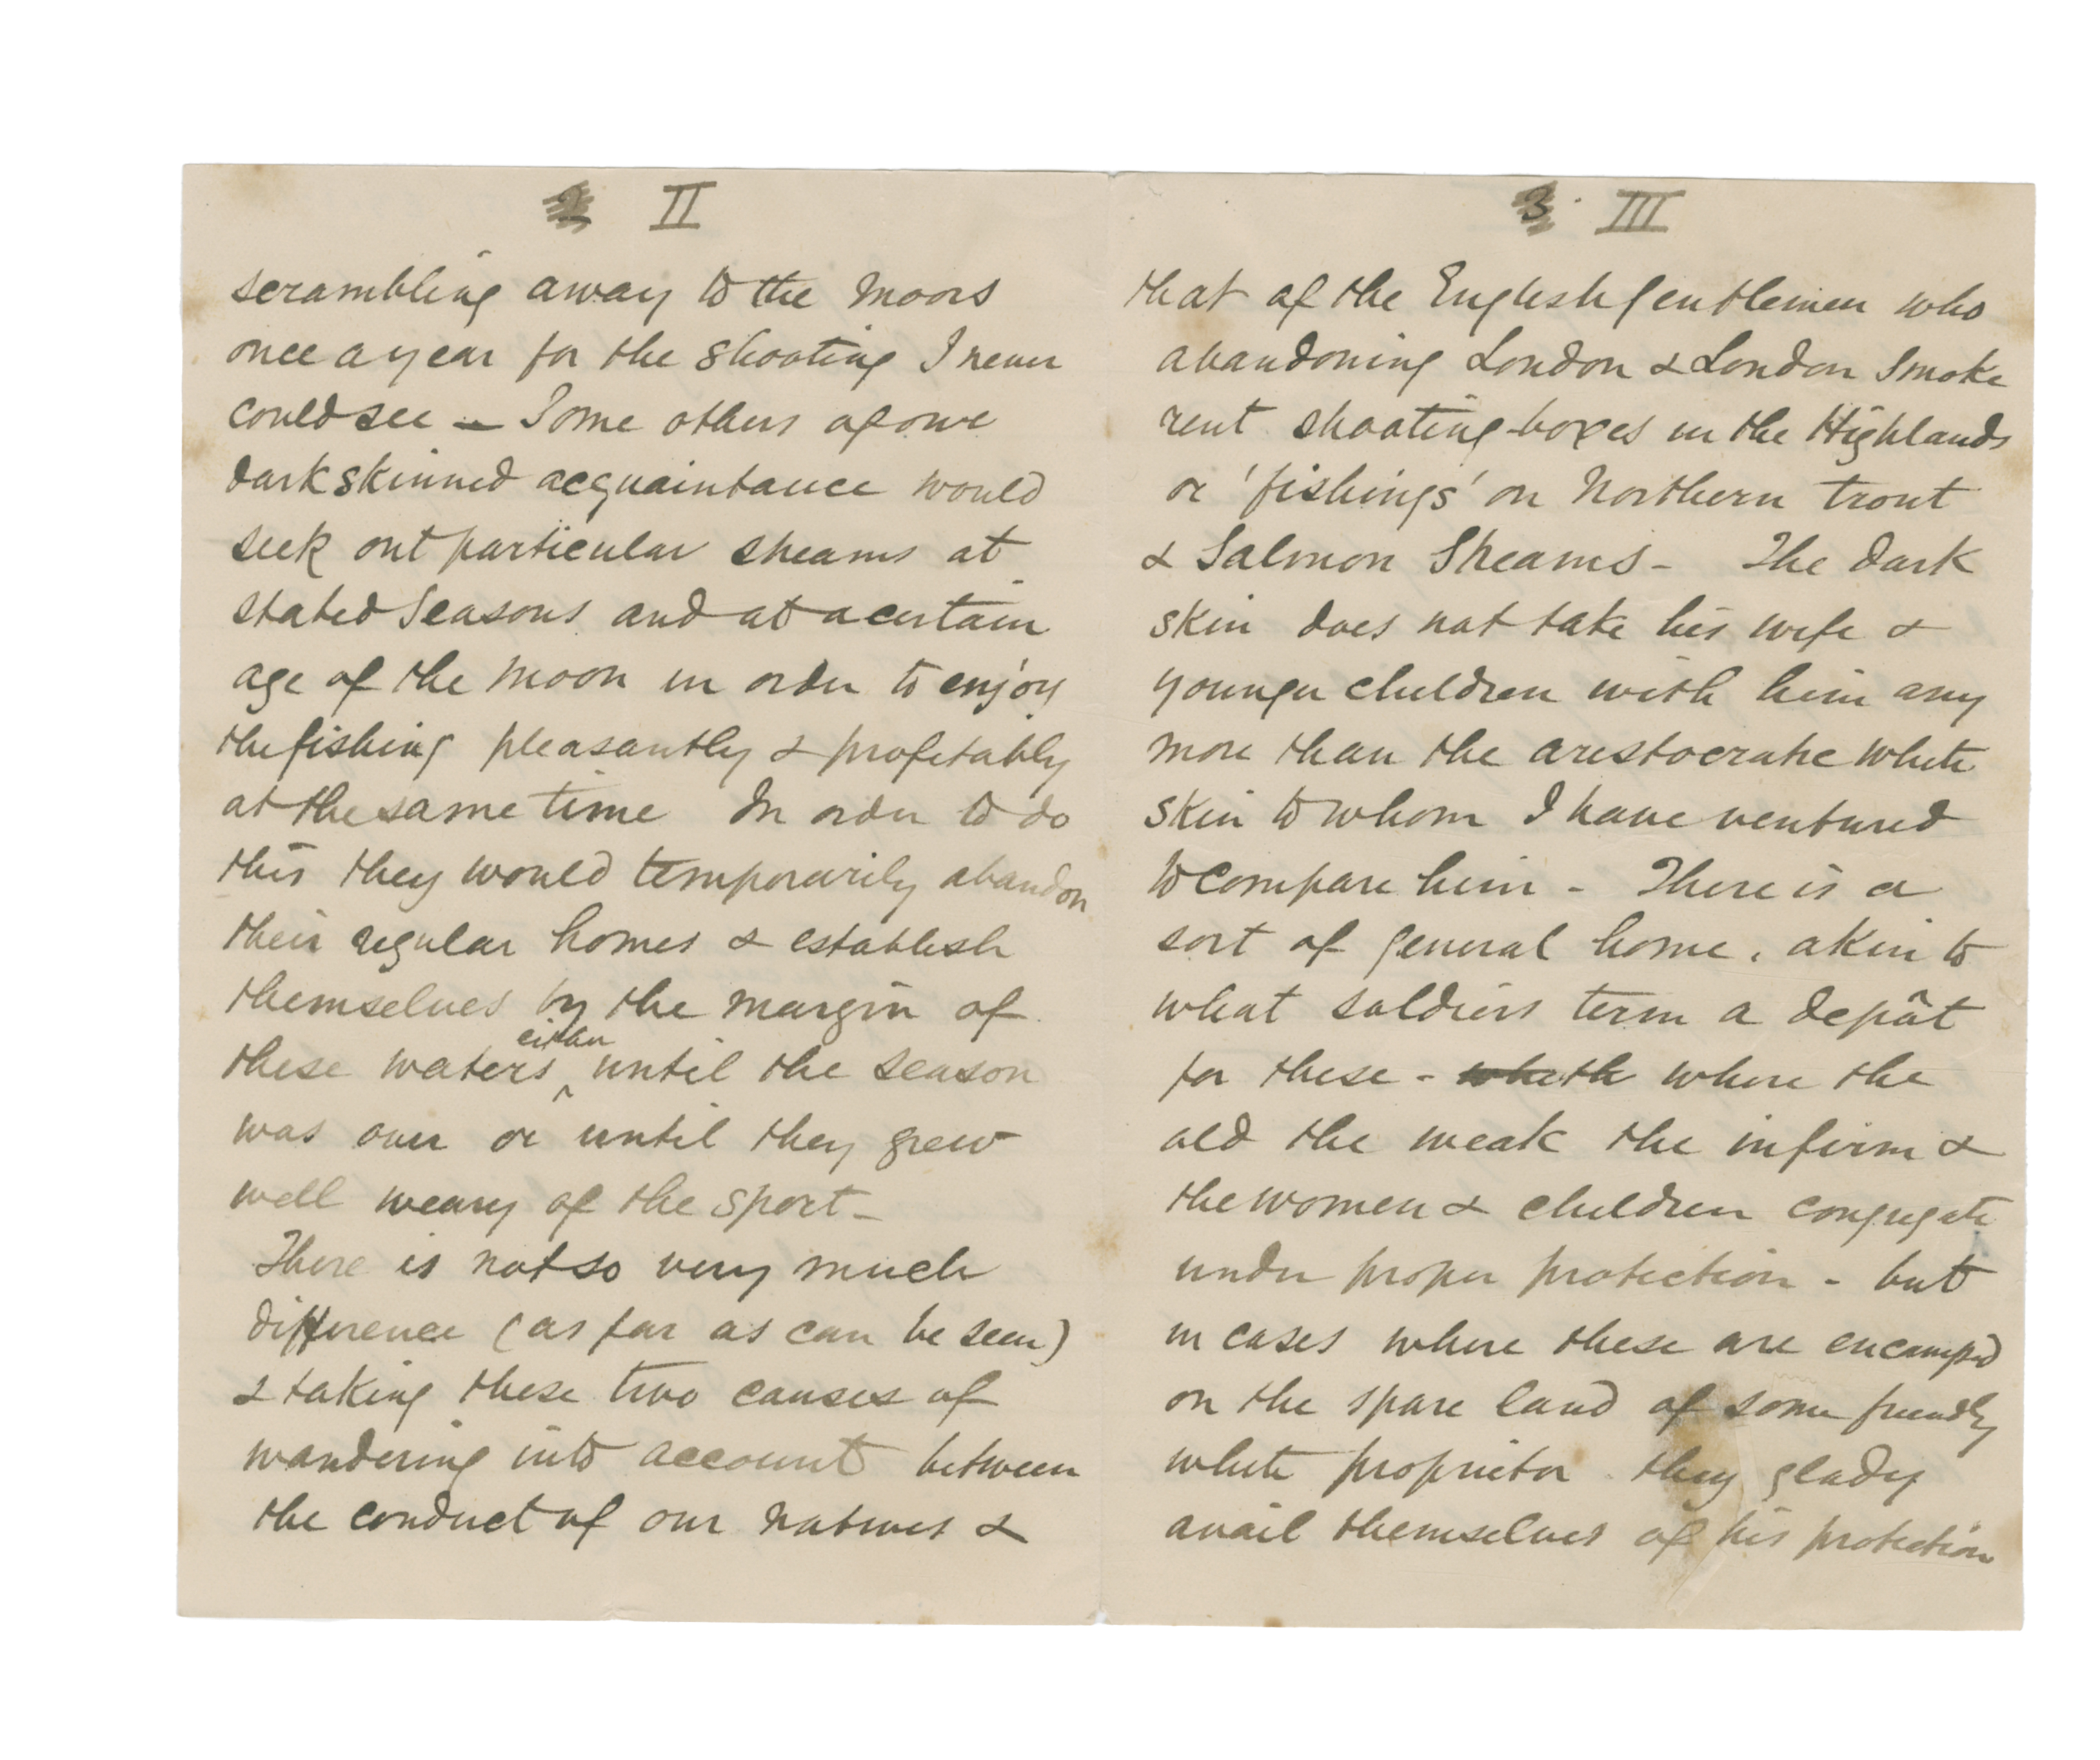 2 II
scrambling away to the Moors
once a year for the shooting I never
could see — Some others of our
dark skinned acquaintance would
seek out particular streams at
stated Seasons and at a certain
age of the Moon in order to enjoy
the fishing pleasantly & profitably
at the same time In order to do
this they would temporarily abandon
their regular homes & establish
themselves by the margin of
these waters either until the season
was over or until they grew
well weary of the sport –
There is not so very much
difference (as far as can be seen)
& taking these two causes of
wandering into account between
the conduct of our natives &
3. III
that of the English gentlemen who
abandoning London & London Smoke
rent shooting-boxes in the Highlands
or 'fishings' on Northern trout
& Salmon Streams – The dark
skin does not take his wife &
younger children with him any
more than the aristocratic white
skin to whom I have ventured
to compare him – There is a
sort of general home, akin to
what soldiers term a depôt
for these – wheth where the
old the weak the infirm &
the women & children congregate
under proper protection – but
in cases where these are encamped
on the spare land of some friendly
white proprietor they glady
avail themselves of his protection